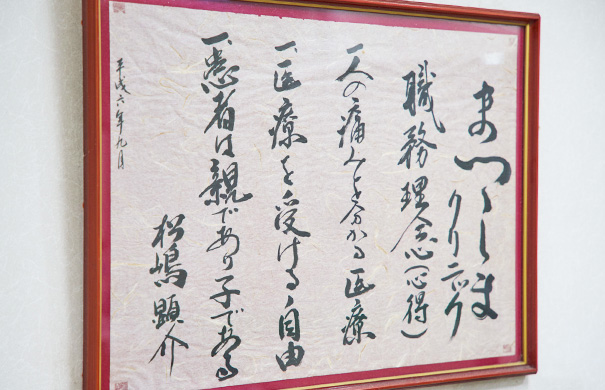 まつしま
クリニック
職務理念（心得）
一、人の痛みと分かる医療
一、医療を受ける自由
一、患者は親であり子である
平成六年九月
松嶋顕介